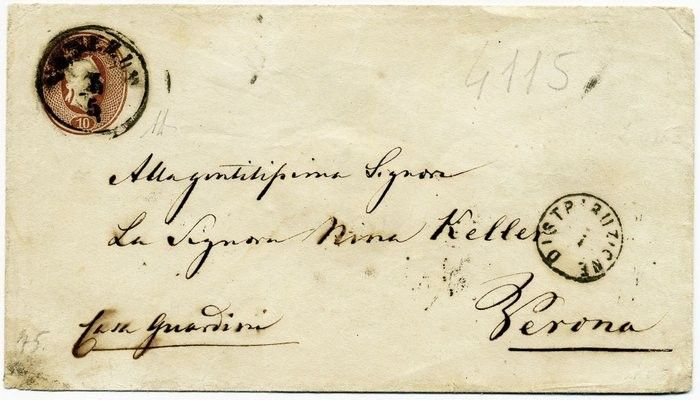 10
5
4115
Alla gentilissima Signora
La Signora Nina Keller
DISTRIBUZIONE
Casa Guardini
Verona
45.